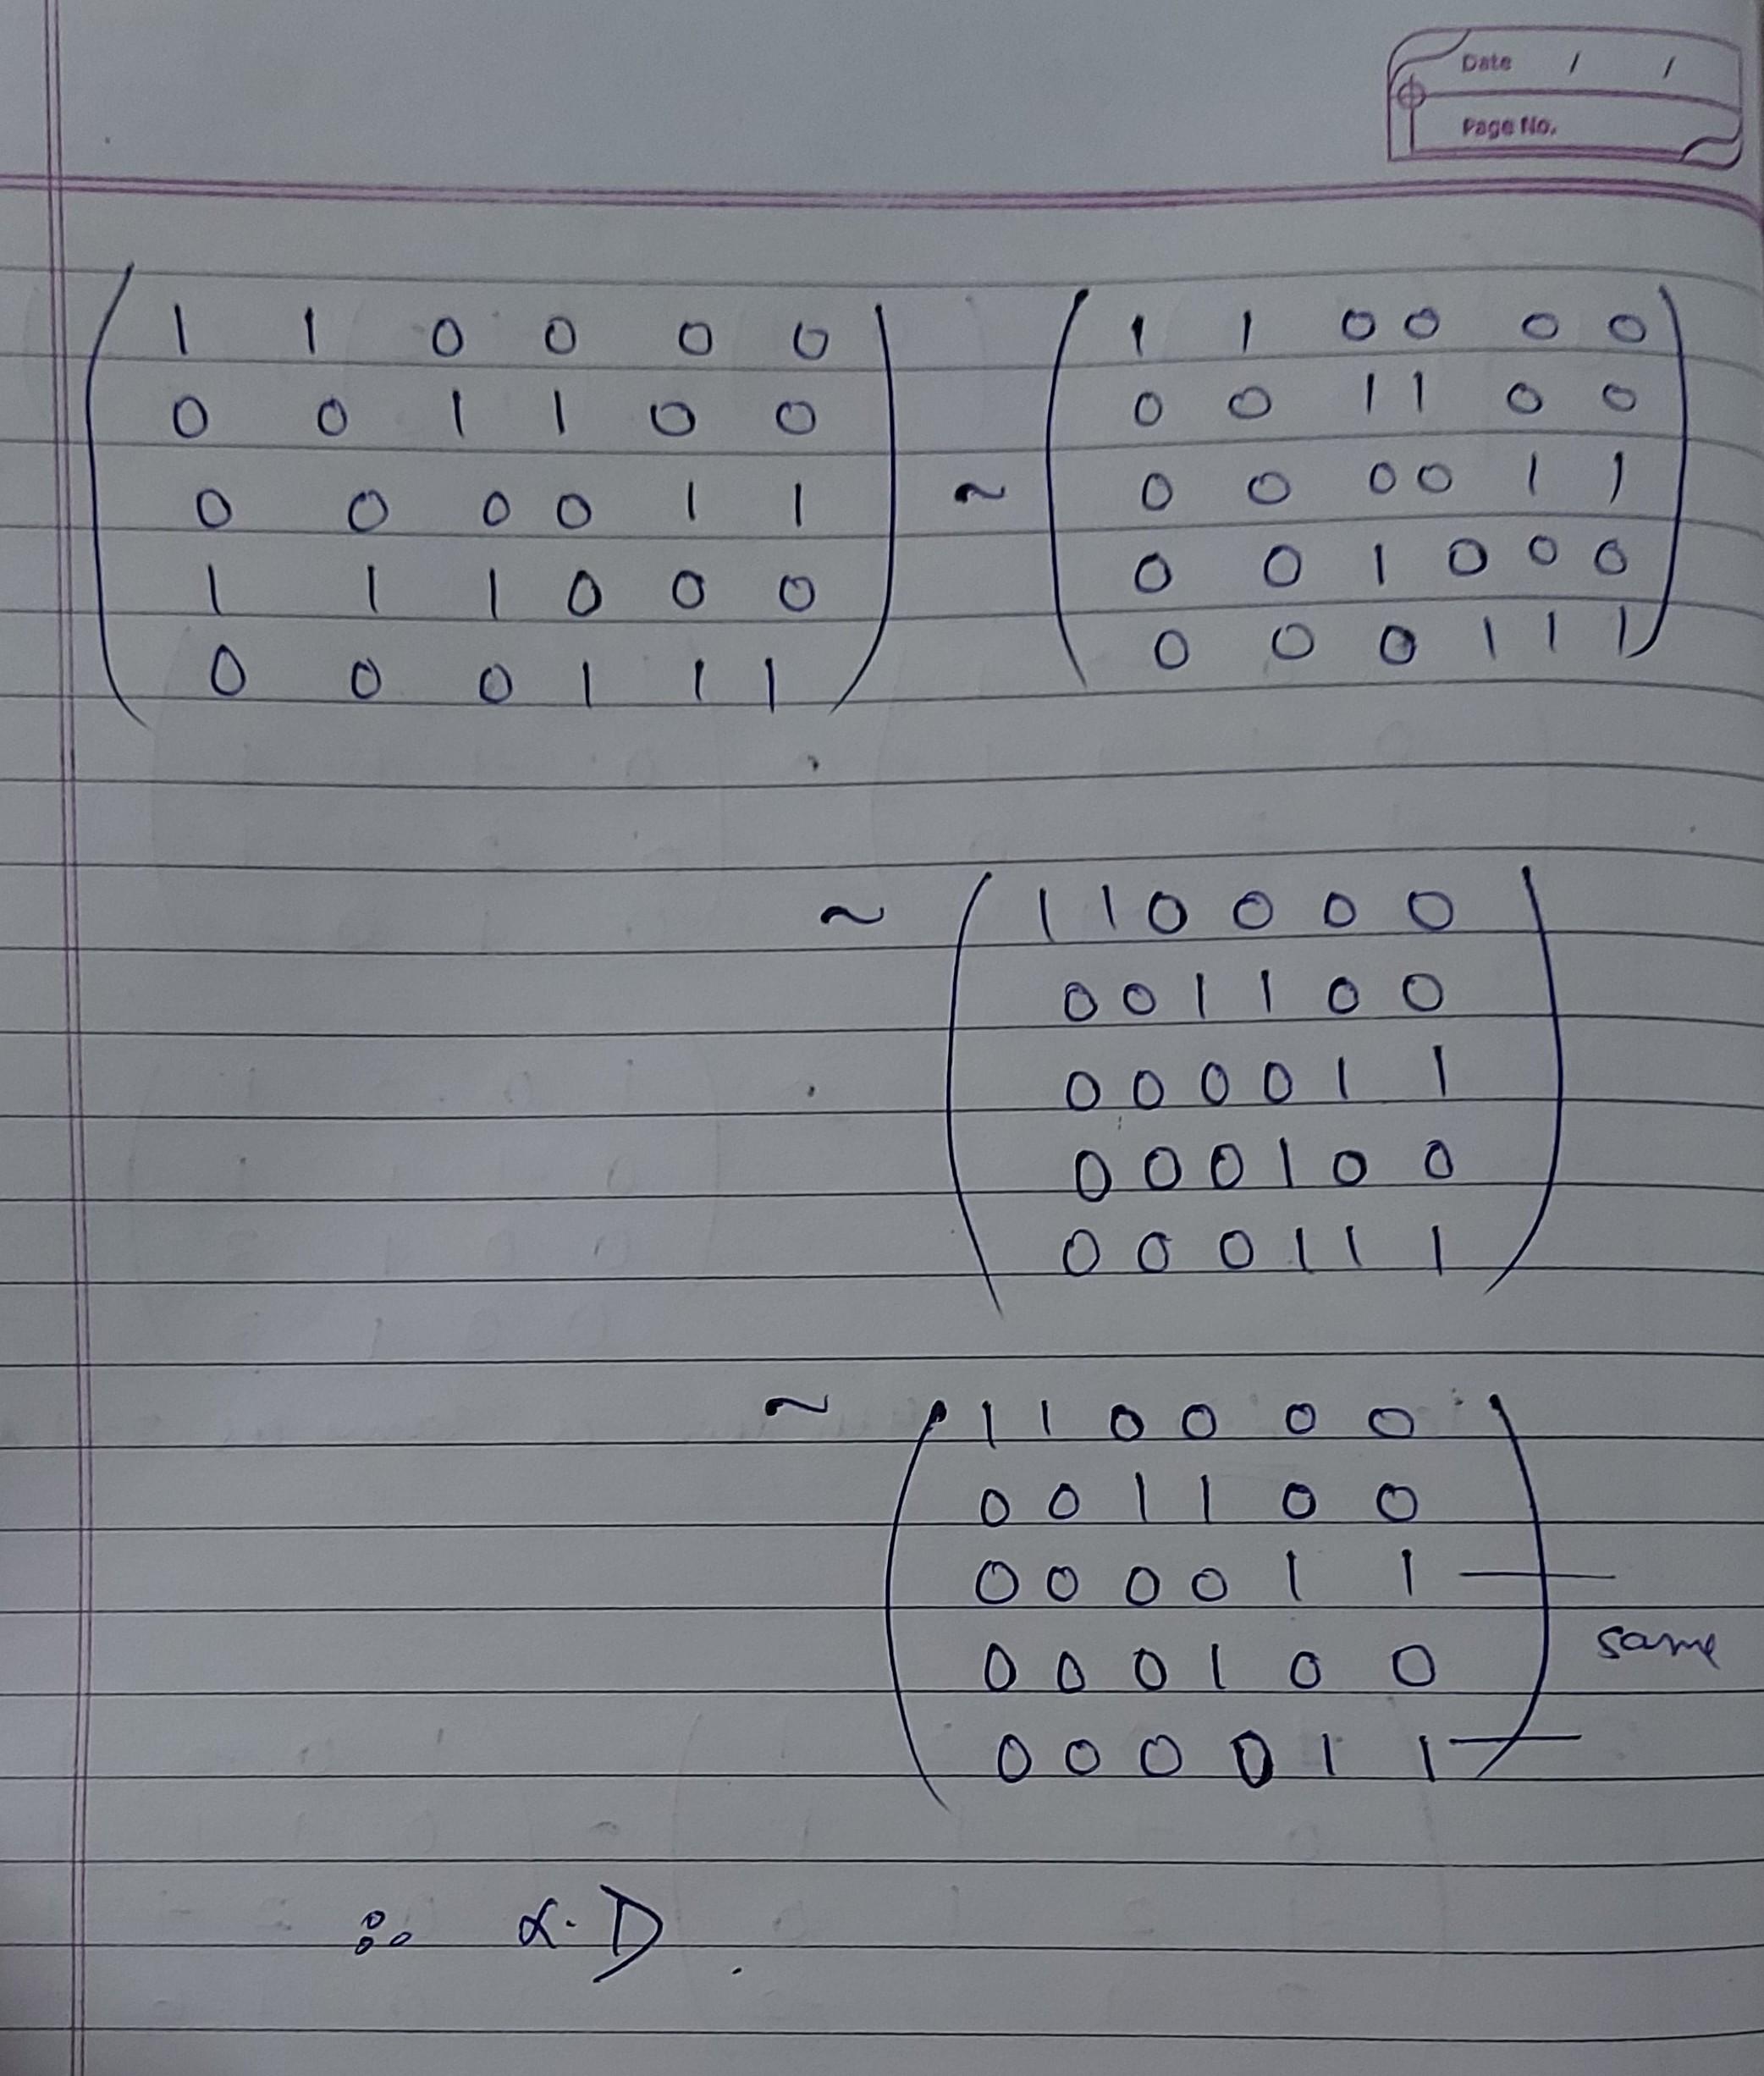 Date / /
Page No.
1 1 0 0 0 0
0 0 1 1 0 0
0 0 0 0 1 1
1 1 1 0 0 0
0 0 0 1 1 1
~
1 1 0 0 0 0
0 0 1 1 0 0
0 0 0 0 1 1
0 0 1 0 0 0
0 0 0 1 1 1
~
1 1 0 0 0 0
0 0 1 1 0 0
0 0 0 0 1 1
0 0 0 1 0 0
0 0 0 1 1 1
~
1 1 0 0 0 0
0 0 1 1 0 0
0 0 0 0 1 1
same
0 0 0 1 0 0
0 0 0 0 1 1
∴ α.D.